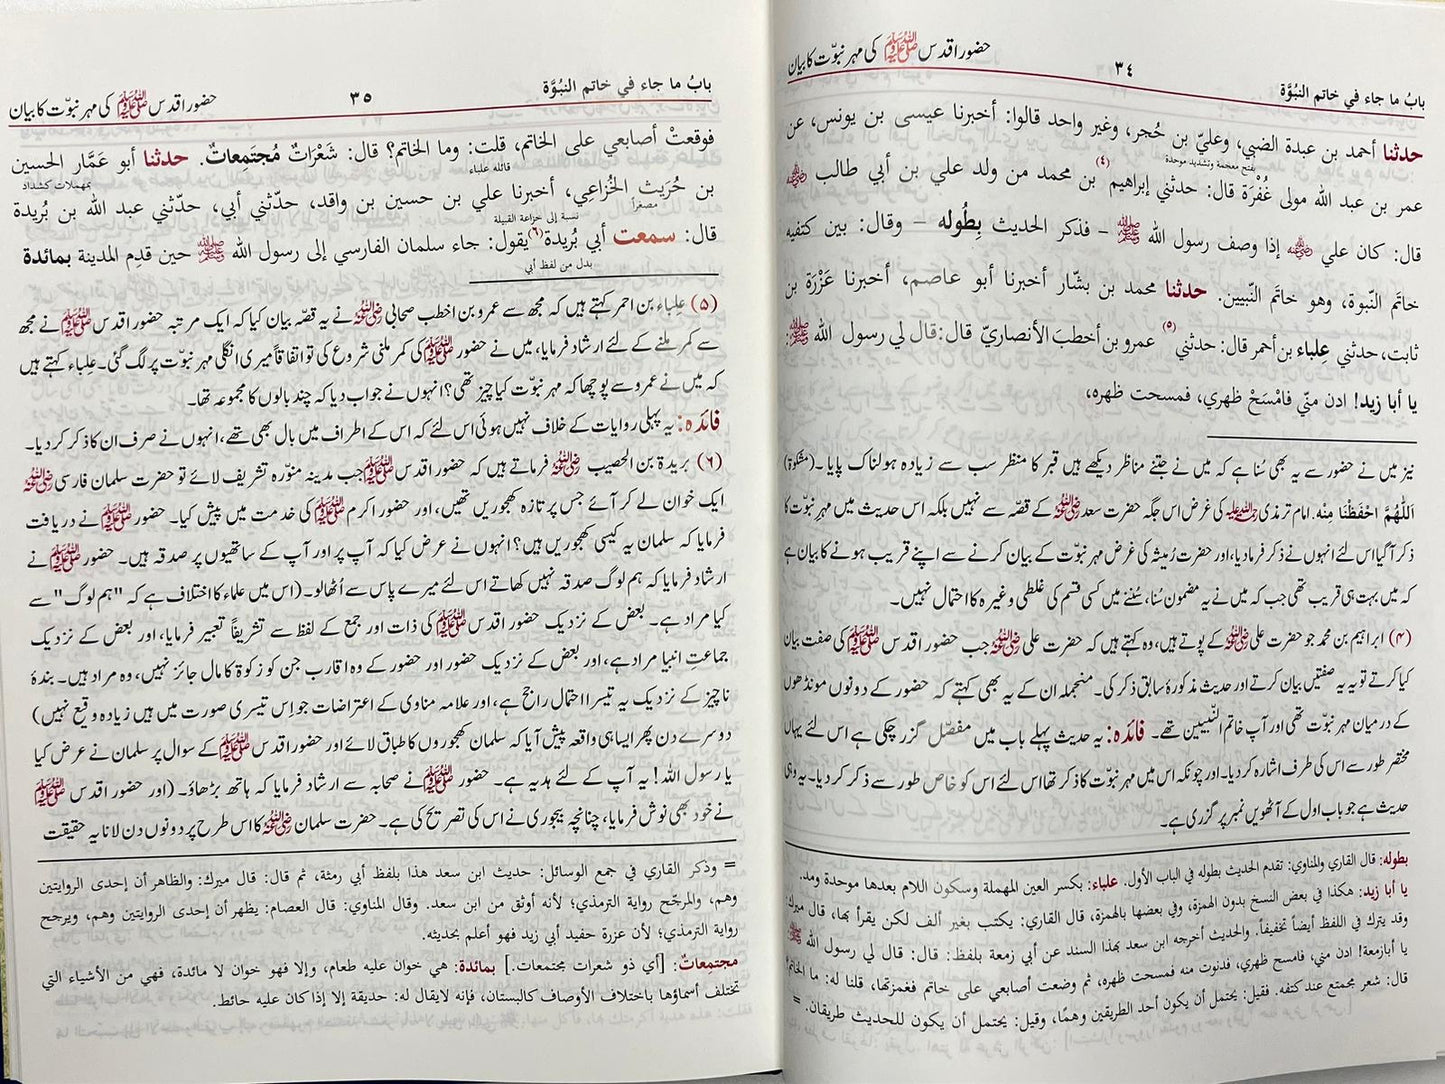 بابُ ما جاء في خاتم النبُوَّة ٣٤ حضور اقدس ﷺ کی مہر نبوّت کا بیان
حدثنا أحمد بن عبدة الضبي، وعليّ بن حُجر، وغير واحد قالوا: أخبرنا عيسى بن يونس، عن
بفتح معجمة وتشديد موحدة
عمر بن عبد الله مولى غُفْرَة قال: حدثني إبراهيم (٤) بن محمد من ولد علي بن أبي طالب ﷺ
قال: كان علي ﷺ إذا وصف رسول الله ﷺ – فذكر الحديث بِطُوله – وقال: بين كتفيه
خاتَم النّبوة، وهو خاتَم النّبيين. حدثنا محمد بن بشّار أخبرنا أبو عاصم، أخبرنا عَزْرَة بن
ثابت، حدثني عِلباء بن أحمر قال: حدثني (٥) عمرو بن أخطبَ الأنصاريّ قال: قال لي رسول الله ﷺ:
يا أبا زيد! ادن منّي فامْسَحْ ظهري، فمسحت ظهره،
نیز میں نے حضور سے یہ بھی سُنا ہے کہ میں نے جتنے مناظر دیکھے ہیں قبر کا منظر سب سے زیادہ ہولناک پایا۔ (مشکوٰة)
اَللّٰهُمَّ احْفَظْنَا مِنْه. امام ترمذی رحمۃ اللہ علیہ کی غرض اس جگہ حضرت سعد رضی اللہ عنہ کے قصّہ سے نہیں بلکہ اس حدیث میں مہرِ نبوّت کا
ذکر آگیا اس لئے انہوں نے ذکر فرما دیا، اور حضرت رُمیثہ کی غرض مہر نبوّت کے بیان کرنے سے اپنے قریب ہونے کا بیان ہے
کہ میں بہت ہی قریب تھی جب کہ میں نے یہ مضمون سُنا، سُننے میں کسی قسم کی غلطی وغیرہ کا احتمال نہیں۔
(۴) ابراہیم بن محمد جو حضرت علی رضی اللہ عنہ کے پوتے ہیں، وہ کہتے ہیں کہ حضرت علی رضی اللہ عنہ جب حضور اقدس ﷺ کی صفت بیان
کیا کرتے تو یہ یہ صفتیں بیان کرتے اور حدیث مذکورۂ سابق ذکر کی۔ منجملہ ان کے یہ بھی کہتے کہ حضور کے دونوں مونڈھوں
کے درمیان مہر نبوّت تھی اور آپ خاتم النّبیین تھے۔ فائدہ: یہ حدیث پہلے باب میں مفصّل گزر چکی ہے اس لئے یہاں
مختصر طور سے اس کی طرف اشارہ کر دیا۔ اور چونکہ اس میں مہر نبوّت کا ذکر تھا اس لئے اس کو خاص طور سے ذکر کر دیا۔ یہ وہی
حدیث ہے جو باب اول کے آٹھویں نمبر پر گزری ہے۔
بطوله: قال القاري والمناوي: تقدم الحديث بطوله في الباب الأول. علباء: بكسر العين المهملة وسكون اللام بعدها موحدة ومد.
يا أبا زيد: هكذا في بعض النسخ بدون الهمزة، وفي بعضها بالهمزة، قال القاري: يكتب بغير ألف لكن يقرأ بها، قال ميرك:
وقد يترك في اللفظ أيضاً تخفيفاً. والحديث أخرجه ابن سعد بهذا السند عن أبي زمعة بلفظ: قال: قال لي رسول الله ﷺ
يا أبازمعة! ادن مني، فامسح ظهري، فدنوت منه فمسحت ظهره، ثم وضعت أصابعي على خاتم فغمزتها، قلنا له: ما الخاتم؟
قال: شعر يجتمع عند كتفه. فقيل: يحتمل أن يكون أحد الطريقين وهمًا، وقيل: يحتمل أن يكون للحديث طريقان. =
بابُ ما جاء في خاتم النبُوَّة ٣٥ حضور اقدس ﷺ کی مہر نبوّت کا بیان
فوقعتْ أصابعي على الخاتم، قلت: وما الخاتم؟ قال: شَعْرَاتٌ مُجتَمِعاتٌ. حدثنا أبو عَمَّار الحسين
قائله علباء بمهملات كشداد
بن حُرَيث الخُزاعِي، أخبرنا علي بن حسين بن واقد، حدّثني أبي، حدّثني عبد الله بن بُريدة
مصغراً نسبة إلى خزاعة القبيلة
قال: سمعت أبي بُريدة (٦) يقول: جاء سلمان الفارسي إلى رسول الله ﷺ حين قدِم المدينة بمائدة
بدل من لفظ أبي
(۵) عِلباء بن احمر کہتے ہیں کہ مجھ سے عمرو بن اخطب صحابی رضی اللہ عنہ نے یہ قصّہ بیان کیا کہ ایک مرتبہ حضور اقدس ﷺ نے مجھ
سے کمر ملنے کے لئے ارشاد فرمایا، میں نے حضور ﷺ کی کمر ملنی شروع کی تو اتفاقاً میری انگلی مہر نبوّت پر لگ گئی۔ عِلباء کہتے ہیں
کہ میں نے عمرو سے پوچھا کہ مہر نبوّت کیا چیز تھی؟ انہوں نے جواب دیا کہ چند بالوں کا مجموعہ تھا۔
فائدہ: یہ پہلی روایات کے خلاف نہیں ہوئی اس لئے کہ اس کے اطراف میں بال بھی تھے، انہوں نے صرف ان کا ذکر کر دیا۔
(۶) بریدة بن الحصیب رضی اللہ عنہ فرماتے ہیں کہ حضور اقدس ﷺ جب مدینہ منوّرہ تشریف لائے تو حضرت سلمان فارسی رضی اللہ عنہ
ایک خوان لے کر آئے جس پر تازہ کھجوریں تھیں، اور حضور اکرم ﷺ کی خدمت میں پیش کیا۔ حضور ﷺ نے دریافت
فرمایا کہ سلمان یہ کیسی کھجوریں ہیں؟ انہوں نے عرض کیا کہ آپ پر اور آپ کے ساتھیوں پر صدقہ ہیں۔ حضور ﷺ نے
ارشاد فرمایا کہ ہم لوگ صدقہ نہیں کھاتے اس لئے میرے پاس سے اُٹھالو۔ (اس میں علماء کا اختلاف ہے کہ "ہم لوگ" سے
کیا مراد ہے۔ بعض کے نزدیک حضور اقدس ﷺ کی ذات اور جمع کے لفظ سے تشریفاً تعبیر فرمایا، اور بعض کے نزدیک
جماعتِ انبیا مراد ہے، اور بعض کے نزدیک حضور اور حضور کے وہ اقارب جن کو زکوة کا مال جائز نہیں، وہ مراد ہیں۔ بندۂ
ناچیز کے نزدیک یہ تیسرا احتمال راجح ہے، اور علامہ مناوی کے اعتراضات جو اِس تیسری صورت میں ہیں زیادہ وقیع نہیں)
دوسرے دن پھر ایسا ہی واقعہ پیش آیا کہ سلمان کھجوروں کا طباق لائے اور حضور اقدس ﷺ کے سوال پر سلمان نے عرض کیا
یا رسول اللہ! یہ آپ کے لئے ہدیہ ہے۔ حضور ﷺ نے صحابہ سے ارشاد فرمایا کہ ہاتھ بڑھاؤ۔ (اور حضور اقدس ﷺ
نے خود بھی نوش فرمایا، چنانچہ بیجوری نے اس کی تصریح کی ہے۔ حضرت سلمان رضی اللہ عنہ کا اس طرح پر دونوں دن لانا یہ حقیقت
= وذكر القاري في جمع الوسائل: حديث ابن سعد هذا بلفظ أبي رمثة، ثم قال: قال ميرك: والظاهر أن إحدى الروايتين
وهم، والمرجّح رواية الترمذي؛ لأنه أوثق من ابن سعد. وقال المناوي: قال العصام: يظهر أن إحدى الروايتين وهم، ويرجح
رواية الترمذي؛ لأن عزرة حفيد أبي زيد فهو أعلم بحديثه.
مجتمعاتٌ: [أي ذو شعرات مجتمعات.] بمائدة: هي خوان عليه طعام، وإلا فهو خوان لا مائدة، فهي من الأشياء التي
تختلف أسماؤها باختلاف الأوصاف كالبستان، فإنه لايقال له: حديقة إلا إذا كان عليه حائط.